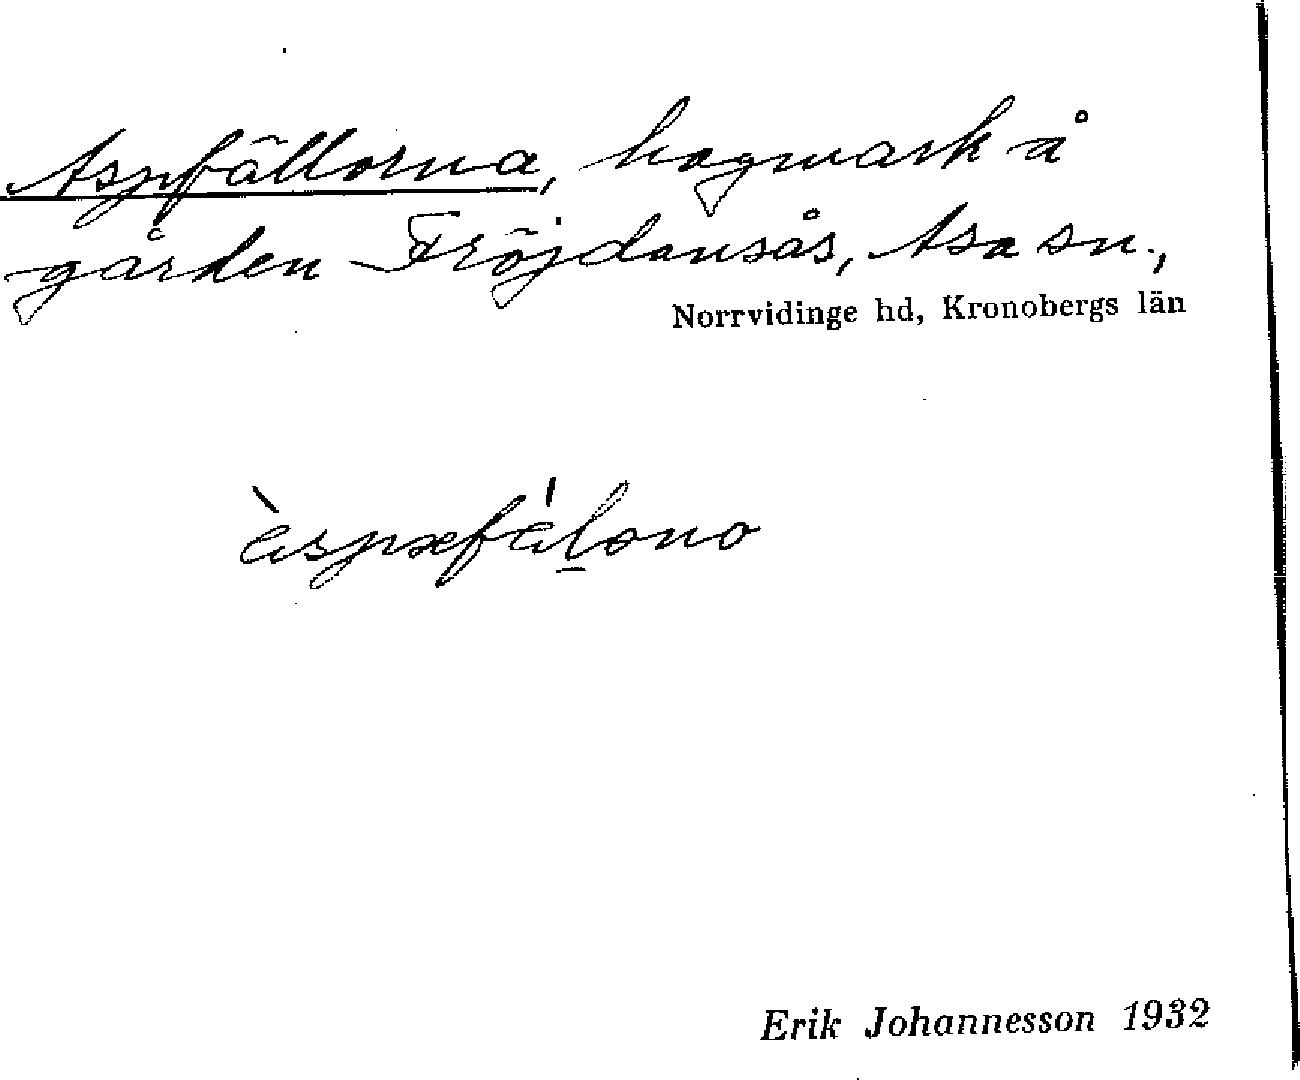 Aspfällorna, hagmark å
gården Fröjdansås, Asa sn.,
Norrvidinge hd, Kronobergs län
Erik Johannesson 1932